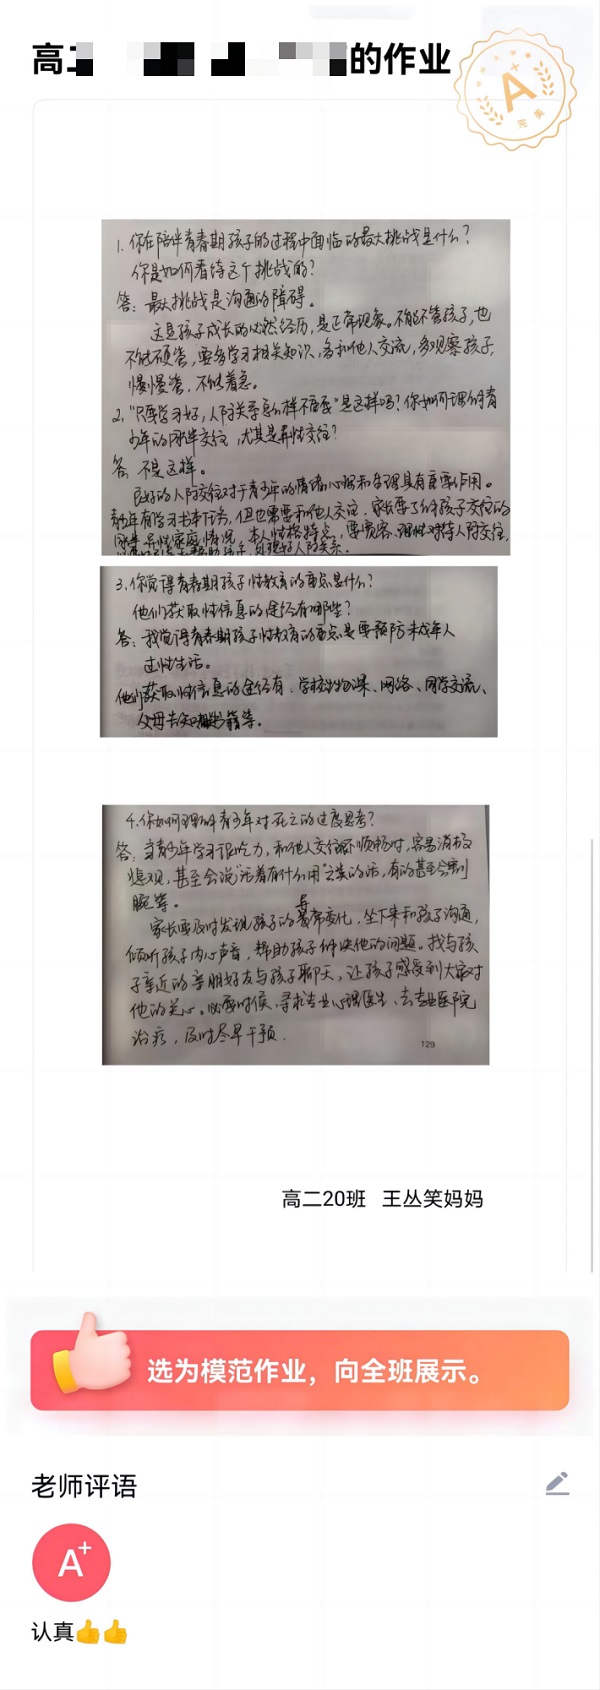 高二
的作业
A+
完美
1.你在陪伴青春期孩子的过程中面临的最大挑战是什么?
你是如何看待这个挑战的?
答:最大挑战是沟通的障碍。
这是孩子成长的必然经历,是正常现象。不能不管孩子,也
不能硬管,要多学习相关知识,多和他人交流,多观察孩子,
慢慢管,不能着急。
2."只要学习好,人际关系怎么样不重要"是这样吗?你如何理解青
少年的同伴交往,尤其是异性交往?
答:不是这样。
良好的人际交往对于青少年的情绪心理和生理具有重要作用。
青少年有学习书本任务,但也需要和他人交往。家长要了解孩子交往的
家庭情况,本人性格特点,要宽容、理性对待人际交往,
3.你觉得青春期孩子性教育的重点是什么?
他们获取性信息的途径有哪些?
答:我觉得青春期孩子性教育的重点是要预防未成年人
过性生活。
他们获取性信息的途径有:学校生物课、网络、同学交流、
父母告知、书籍等。
4.你如何理解青少年对死亡的过度思考?
答:当青少年学习很吃力,和他人交往不顺畅时,容易消极
悲观,甚至会说"活着有什么用"之类的话,有的甚至会割
腕等。
家长要及时发现孩子的异常变化,坐下来和孩子沟通,
倾听孩子内心声音,帮助孩子解决他的问题。找与孩
子亲近的亲朋好友与孩子聊天,让孩子感受到大家对
他的关心。必要时候,寻求专业心理医生、去专业医院
治疗,及时尽早干预.
129
高二20班 王丛笑妈妈
选为模范作业,向全班展示。
老师评语
A+
认真👍👍